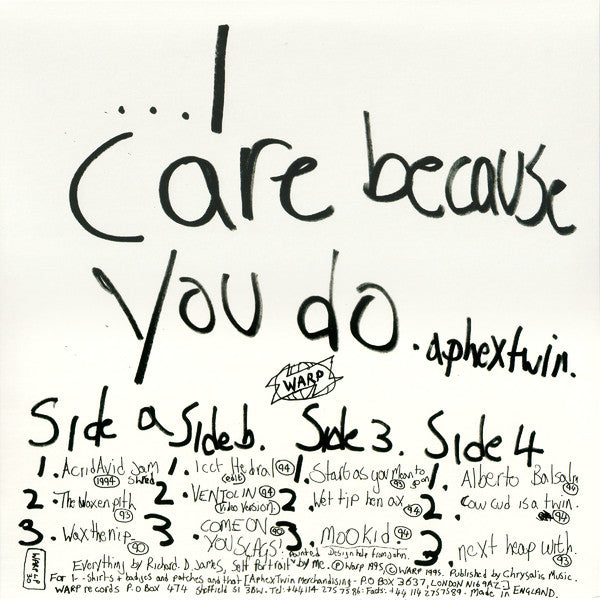 ...I
care because
you do.
.aphextwin.
WARP
Side a
1. Acrid Avid Jam Shred (1994)
2. The Waxen pith (93)
3. Wax the nip (90)
Side b.
1. Icct Hedral (94) (edit)
2. VENTOLIN (94) (Video Version)
3. COME ON YOU SLAGS! (90)
Side 3.
1. Start as you Mean to go on (93)
2. Wet tip hen ax. (94)
3. Mookid. (94)
Side 4
1. Alberto Balsalm (94)
2. Cow cud is a twin. (94)
3. next heap with. (93)
WARP LP 30
Everything by Richard. D. James, Self Portrait painted by me. Design help from des. ℗ Warp 1995 © WARP 1995. Published by Chrysalis Music.
For T-Shirts + badges and patches and that [Aphex Twin Merchandising - P.O BOX 3637, LONDON N16 9AZ]
WARP records P.O Box 474 Sheffield S1 3BW. Tel: +44 114 275 7586: Facts: +44 114 2757589. Made in ENGLAND.